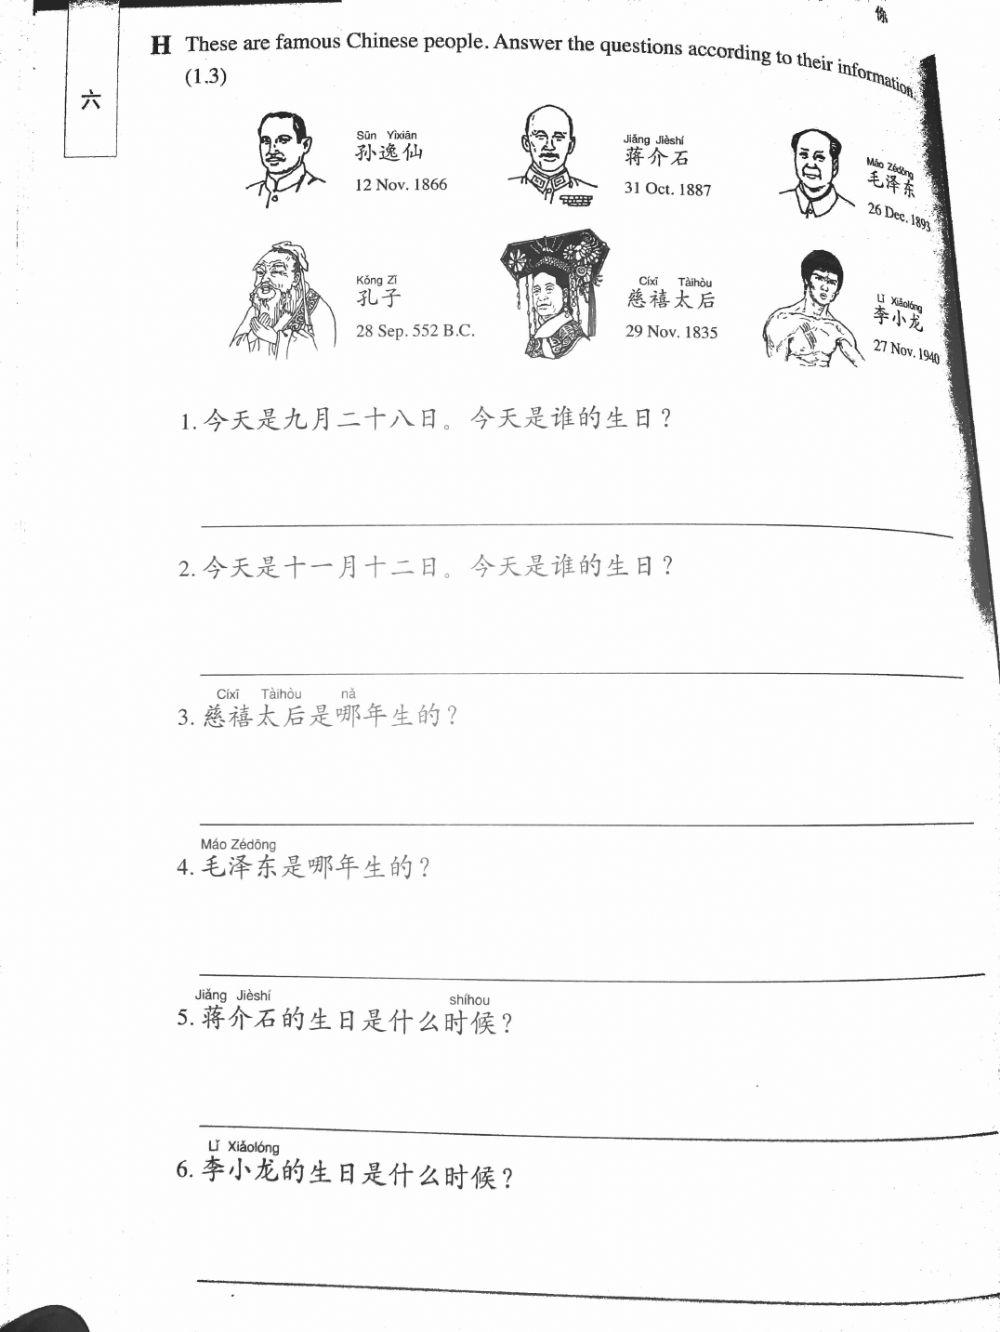 你
六
H These are famous Chinese people. Answer the questions according to their information.
(1.3)
Sūn Yìxiān
孙逸仙
12 Nov. 1866
Jiǎng Jièshí
蒋介石
31 Oct. 1887
Máo Zédōng
毛泽东
26 Dec. 1893
Kǒng Zǐ
孔子
28 Sep. 552 B.C.
Cíxǐ Tàihòu
慈禧太后
29 Nov. 1835
Lǐ Xiǎolóng
李小龙
27 Nov. 1940
1. 今天是九月二十八日。今天是谁的生日？
2. 今天是十一月十二日。今天是谁的生日？
Cíxǐ Tàihòu nǎ
3. 慈禧太后是哪年生的？
Máo Zédōng
4. 毛泽东是哪年生的？
Jiǎng Jièshí shíhou
5. 蒋介石的生日是什么时候？
Lǐ Xiǎolóng
6. 李小龙的生日是什么时候？